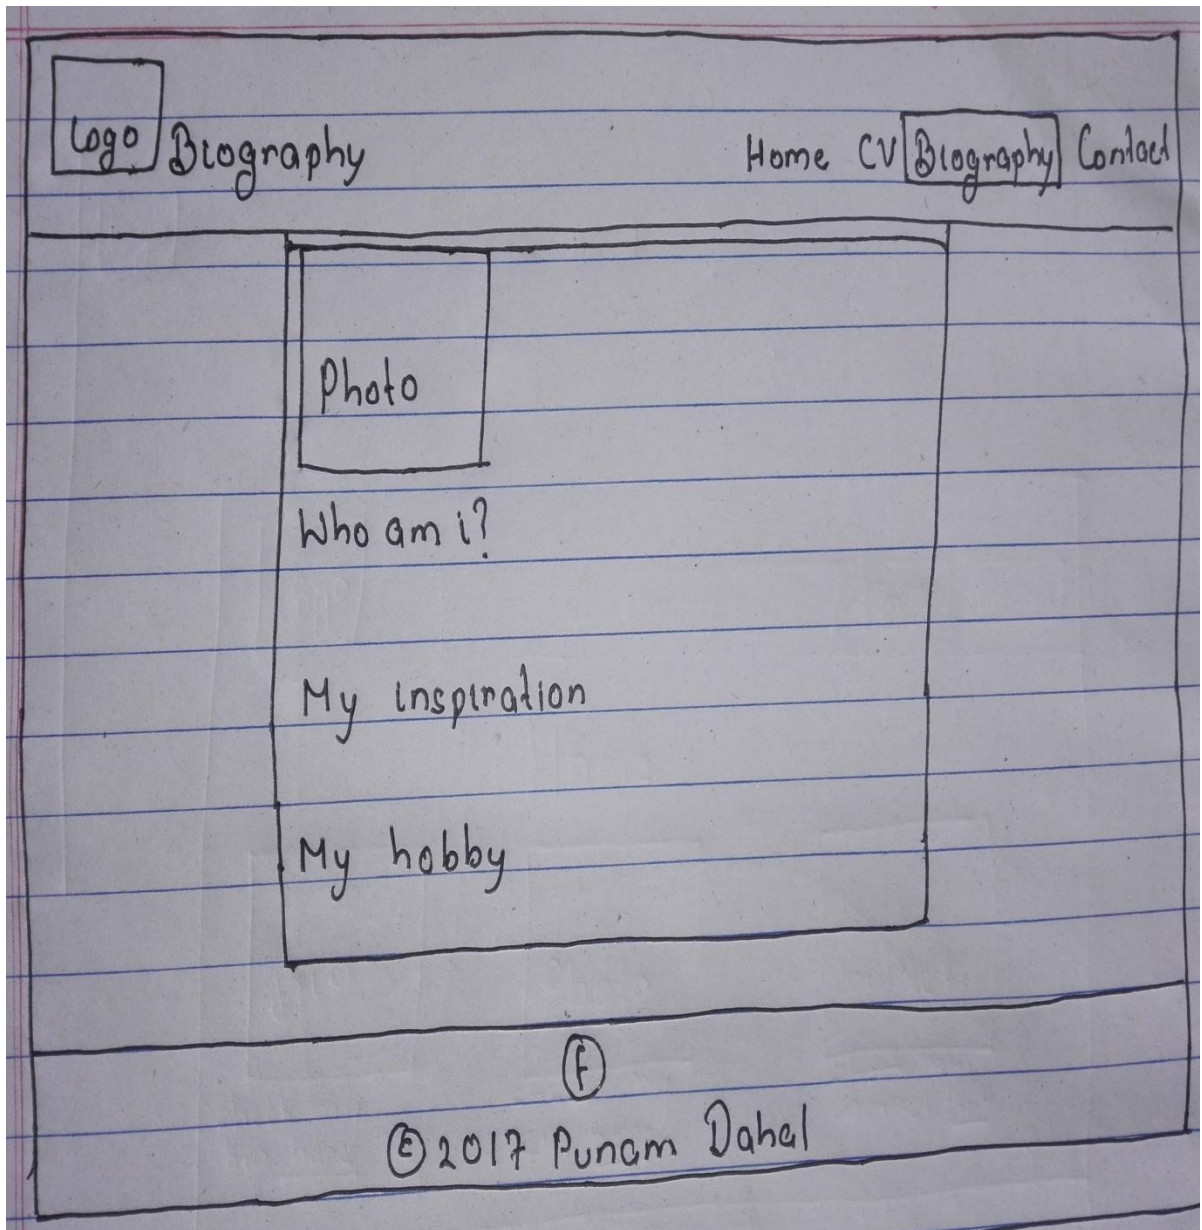 Logo Biography Home CV Biography Contact
Photo
Who am i?
My inspiration
My hobby
f
©2017 Punam Dahal